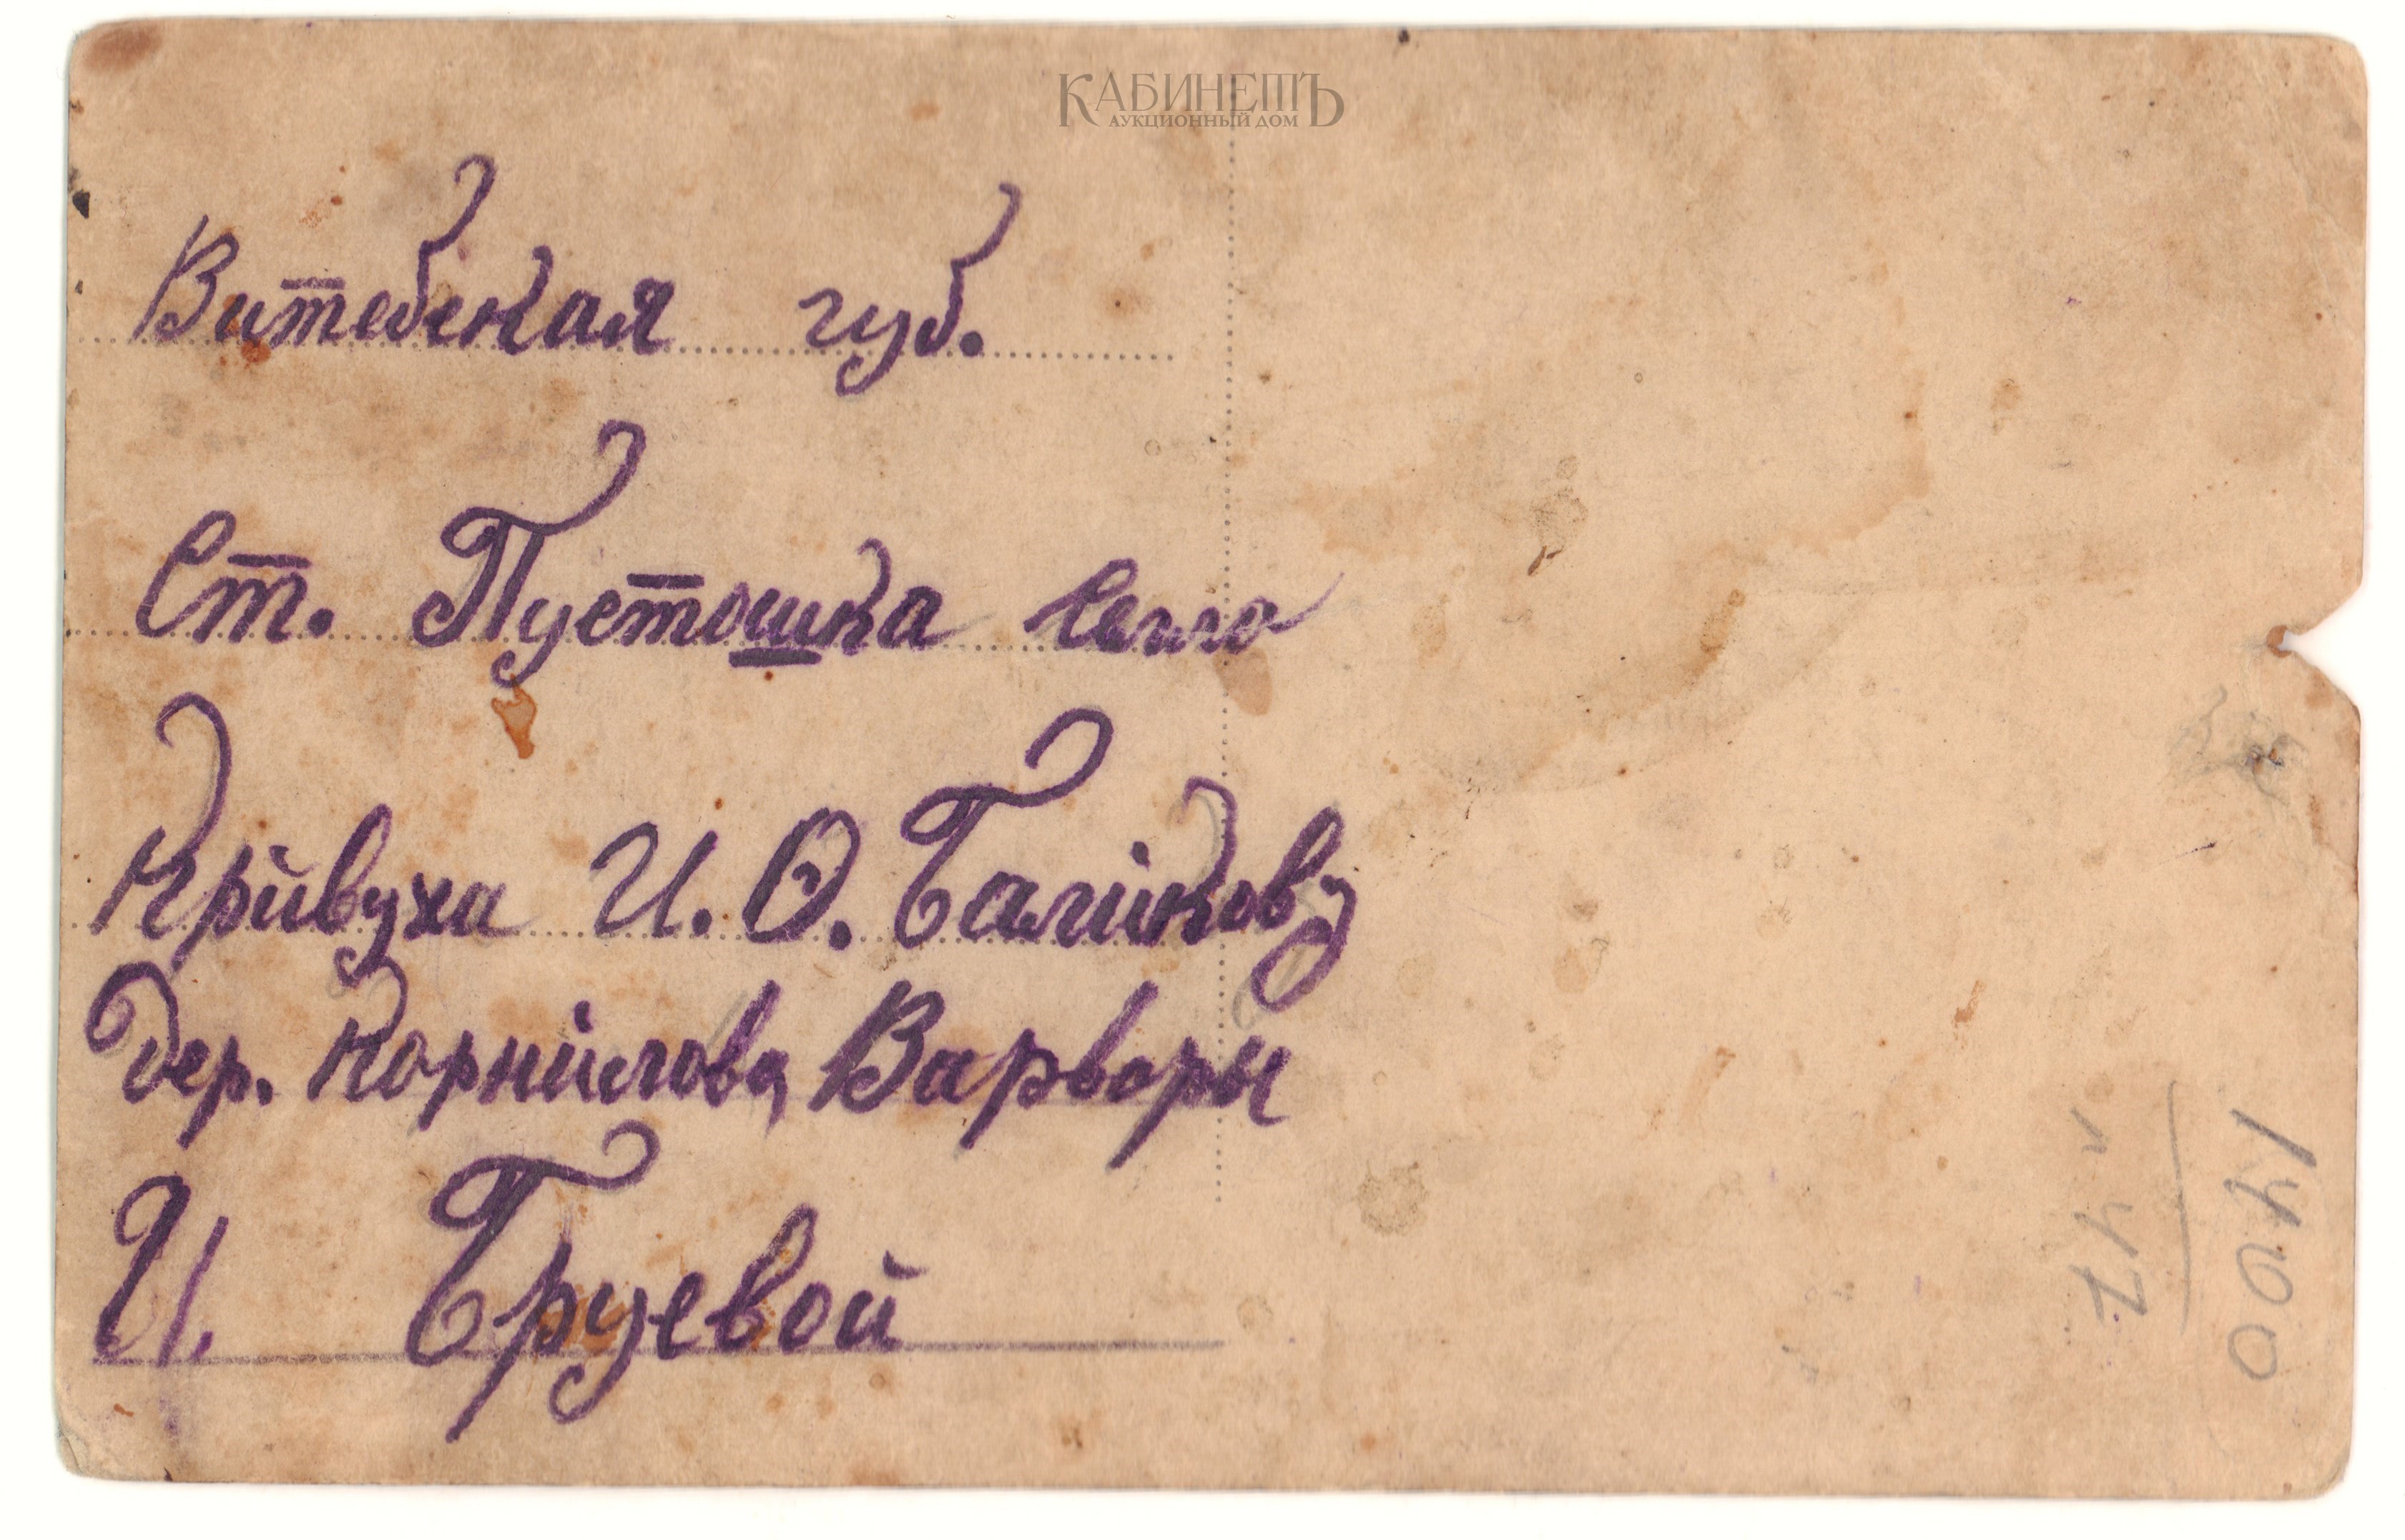 КАБИНЕТЪ
АУКЦИОННЫЙ ДОМ
Витебская губ.
Ст. Пустошка село
Кривуха И. Ѳ. Балiкову
дер. Корнилова Варвары
И. Бруевой
1400
п 47